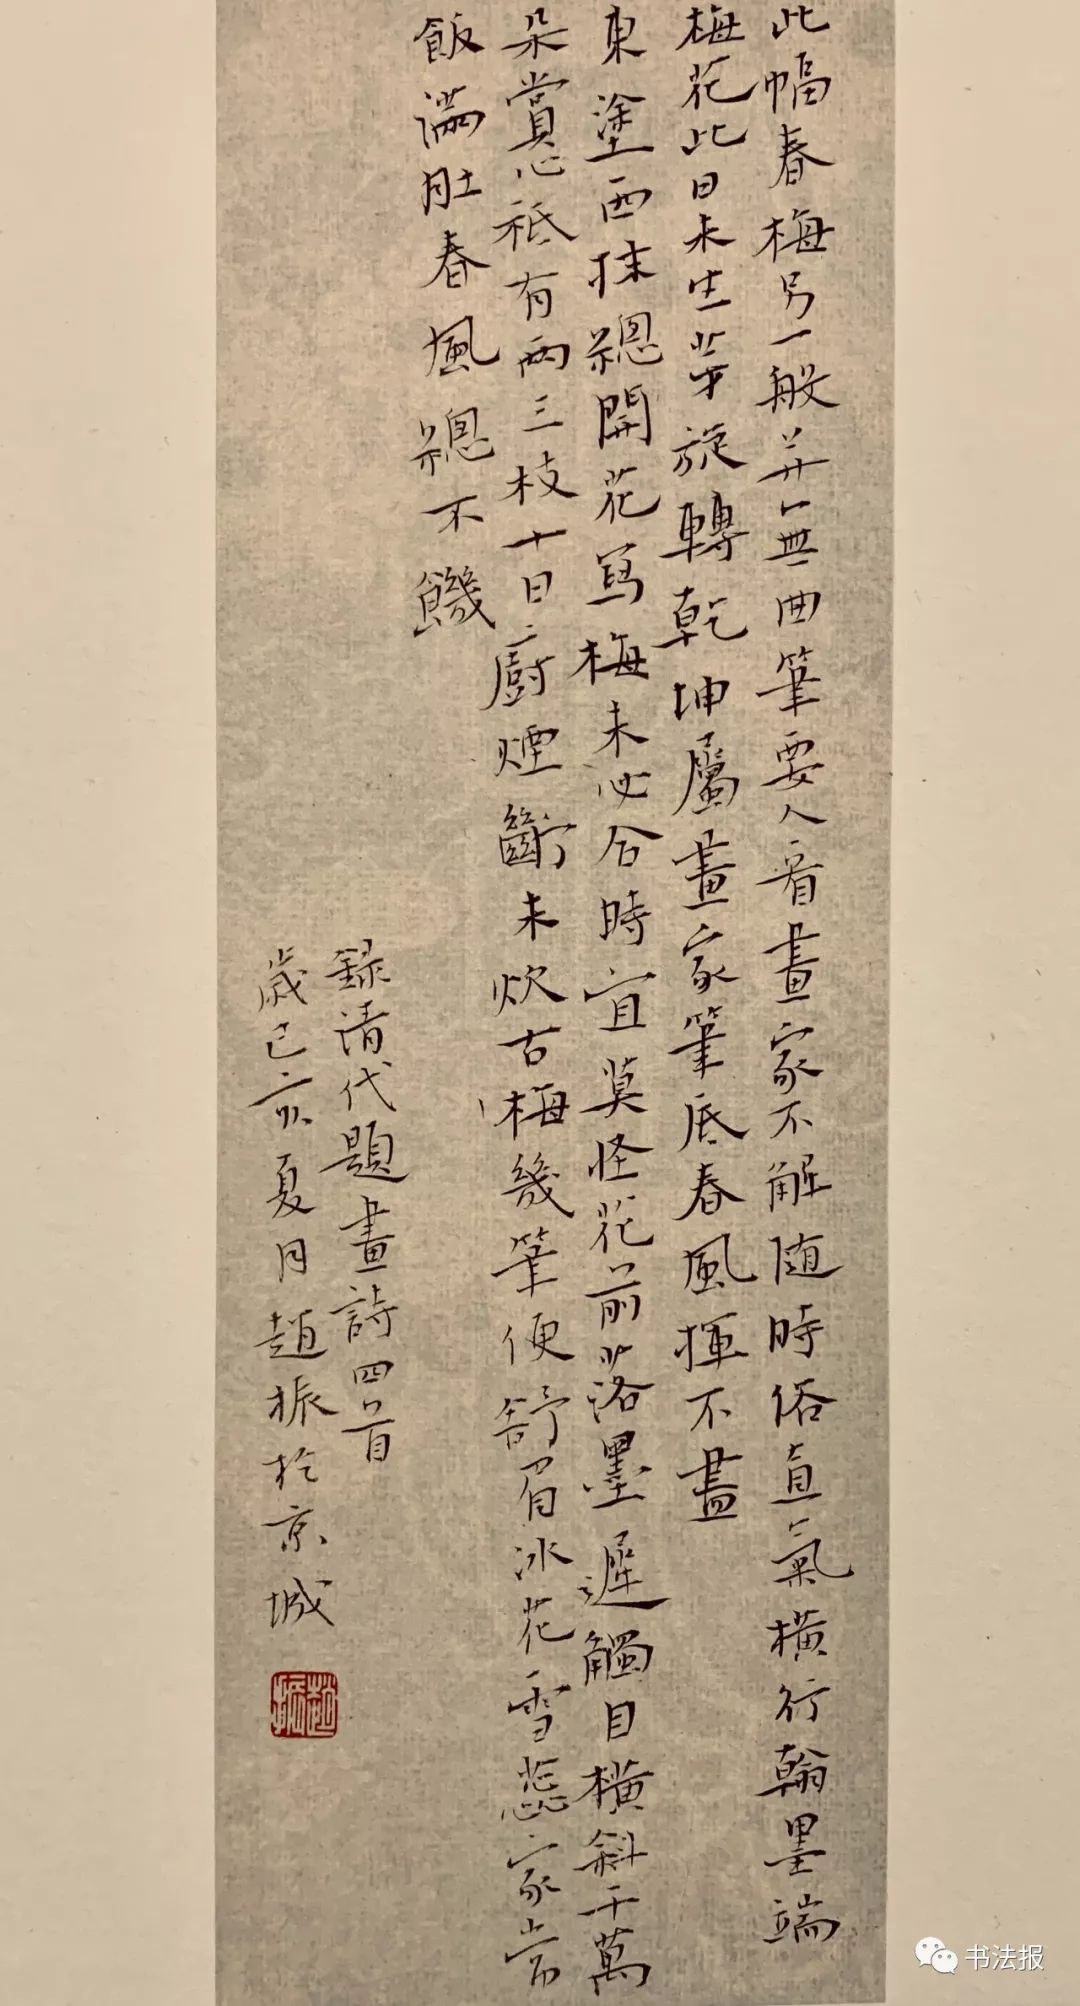 此幅春梅另一般並無曲筆要人看畫家不解随時俗直氣橫行翰墨端
梅花此日未生芽旋轉乾坤屬畫家筆底春風揮不盡
東塗西抹總開花寫梅未必合時宜莫怪花前落墨遲觸目橫斜千萬
朵賞心祗有兩三枝十日廚煙斷未炊古梅幾筆便舒眉冰花雪蕊家常
飯滿肚春風總不饑
録清代題畫詩四首
歲己亥夏月趙振於京城
趙振
书法报